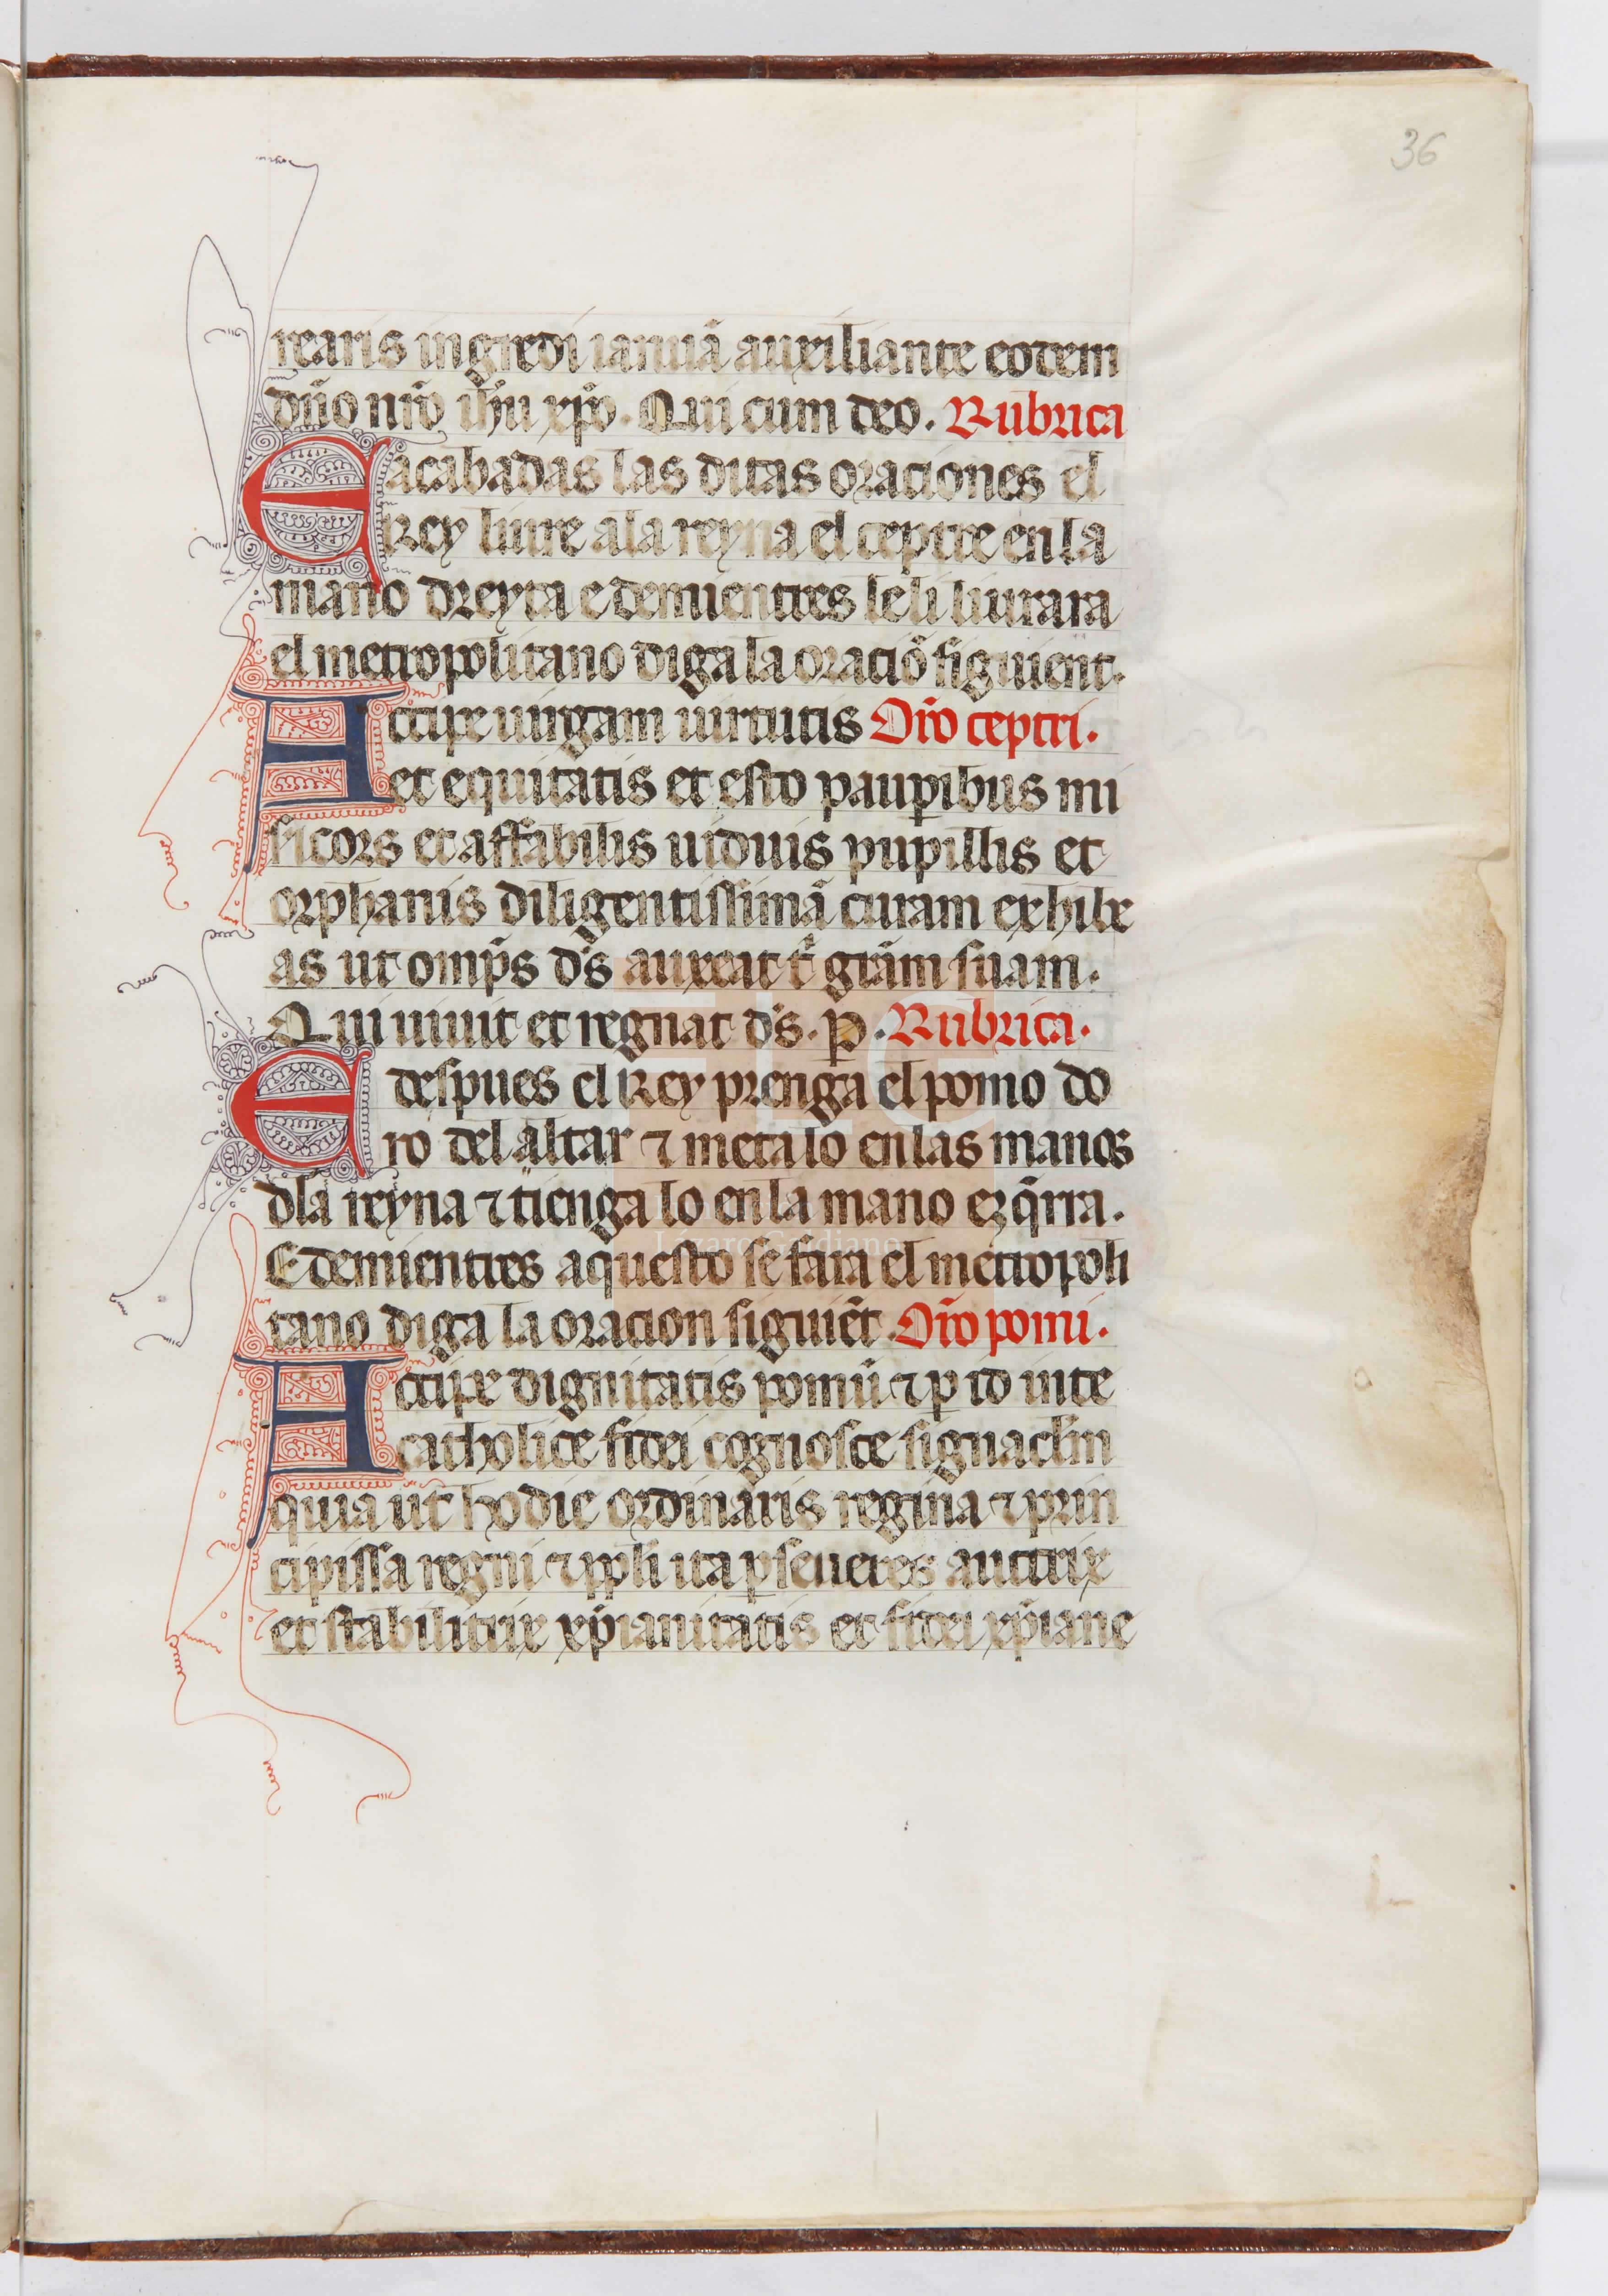 36
rearis ingredi ianuā auxiliante eodem
dn̄o nr̄o ih̄u xp̄o. Qui cum deo. Rubrica
E acabadas las ditas oraciones el
Rey liure a la reyna el ceptre en la
mano dreyta e demientres le li liurara
el metropolitano diga la oraciō siguient.
Accipe uirgam uirtutis Oro ceptri.
et equitatis et esto paupibus mi
sicors et affabilis uiduis pupillis et
orphanis diligentissimā curam exhibe
as ut omps ds augeat t grām suam.
Qui uiuit et regnat ds. p. Rubrica.
E despues el Rey prenga el pomo do
ro del altar ⁊ meta lo en las manos
dla reyna ⁊ tienga lo en la mano ezq̄rra.
E demientres aquesto se fara el metropoli
tano diga la oracion siguiēt. Oro pomi.
Accipe dignitatis pomū ⁊ p id uite
catholice fidei cognosce signaclm
quia ut hodie ordinaris regina ⁊ prin
cipissa regni ⁊ ppli ita pseueres auctrix
et stabilitrix xp̄ianitatis et fidei xp̄iane
Lázaro Galdiano